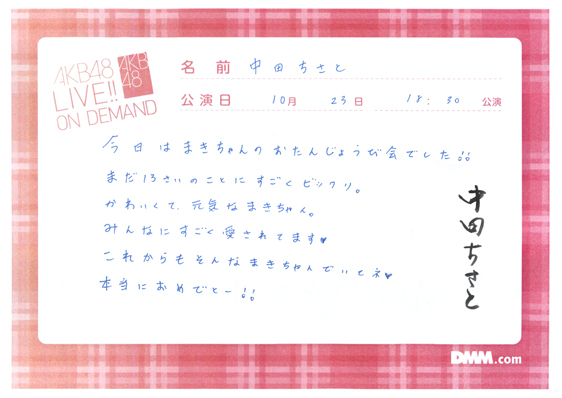 AKB48
LIVE!!
ON DEMAND
AKB
48
名前 中田ちさと
公演日 10月 23日 18:30 公演
今日はまきちゃんのおたんじょうび会でした!!
まだ13さいのことにすごくビックリ。
かわいくて、元気なまきちゃん。
みんなにすごく愛されてます♥
これからもそんなまきちゃんでいてネ♥
本当におめでとー!!
中田ちさと
DMM.com